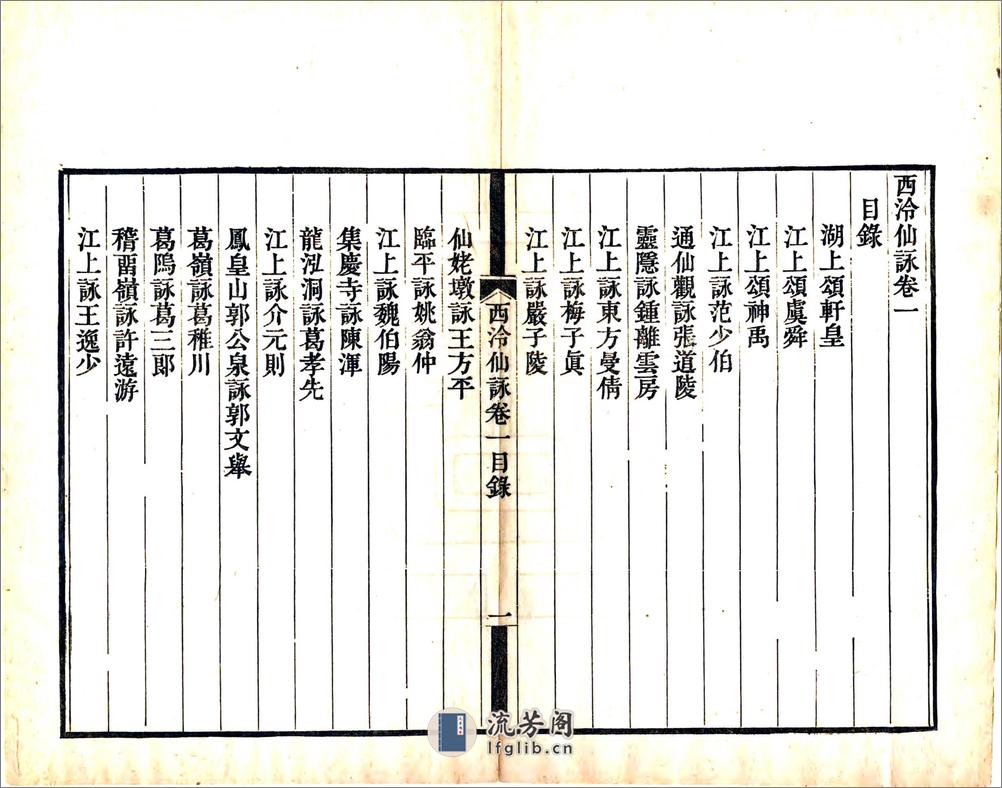 西泠仙詠卷一
目錄
湖上頌軒皇
江上頌虞舜
江上頌神禹
江上詠范少伯
通仙觀詠張道陵
靈隱詠鍾離雲房
江上詠東方曼倩
江上詠梅子眞
江上詠嚴子陵
西泠仙詠卷一目錄
一
仙姥墩詠王方平
臨平詠姚翁仲
江上詠魏伯陽
集慶寺詠陳渾
龍泓洞詠葛孝先
江上詠介元則
鳳皇山郭公泉詠郭文舉
葛嶺詠葛稚川
葛隖詠葛三郞
稽畱嶺詠許遠游
江上詠王逸少
流芳阁
lfglib.cn